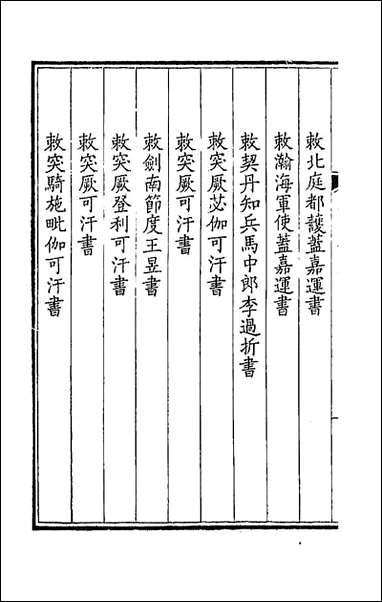 敕北庭都護蓋嘉運書
敕瀚海軍使蓋嘉運書
敕契丹知兵馬中郎李過折書
敕突厥苾伽可汗書
敕突厥可汗書
敕劍南節度王昱書
敕突厥登利可汗書
敕突厥可汗書
敕突騎施毗伽可汗書